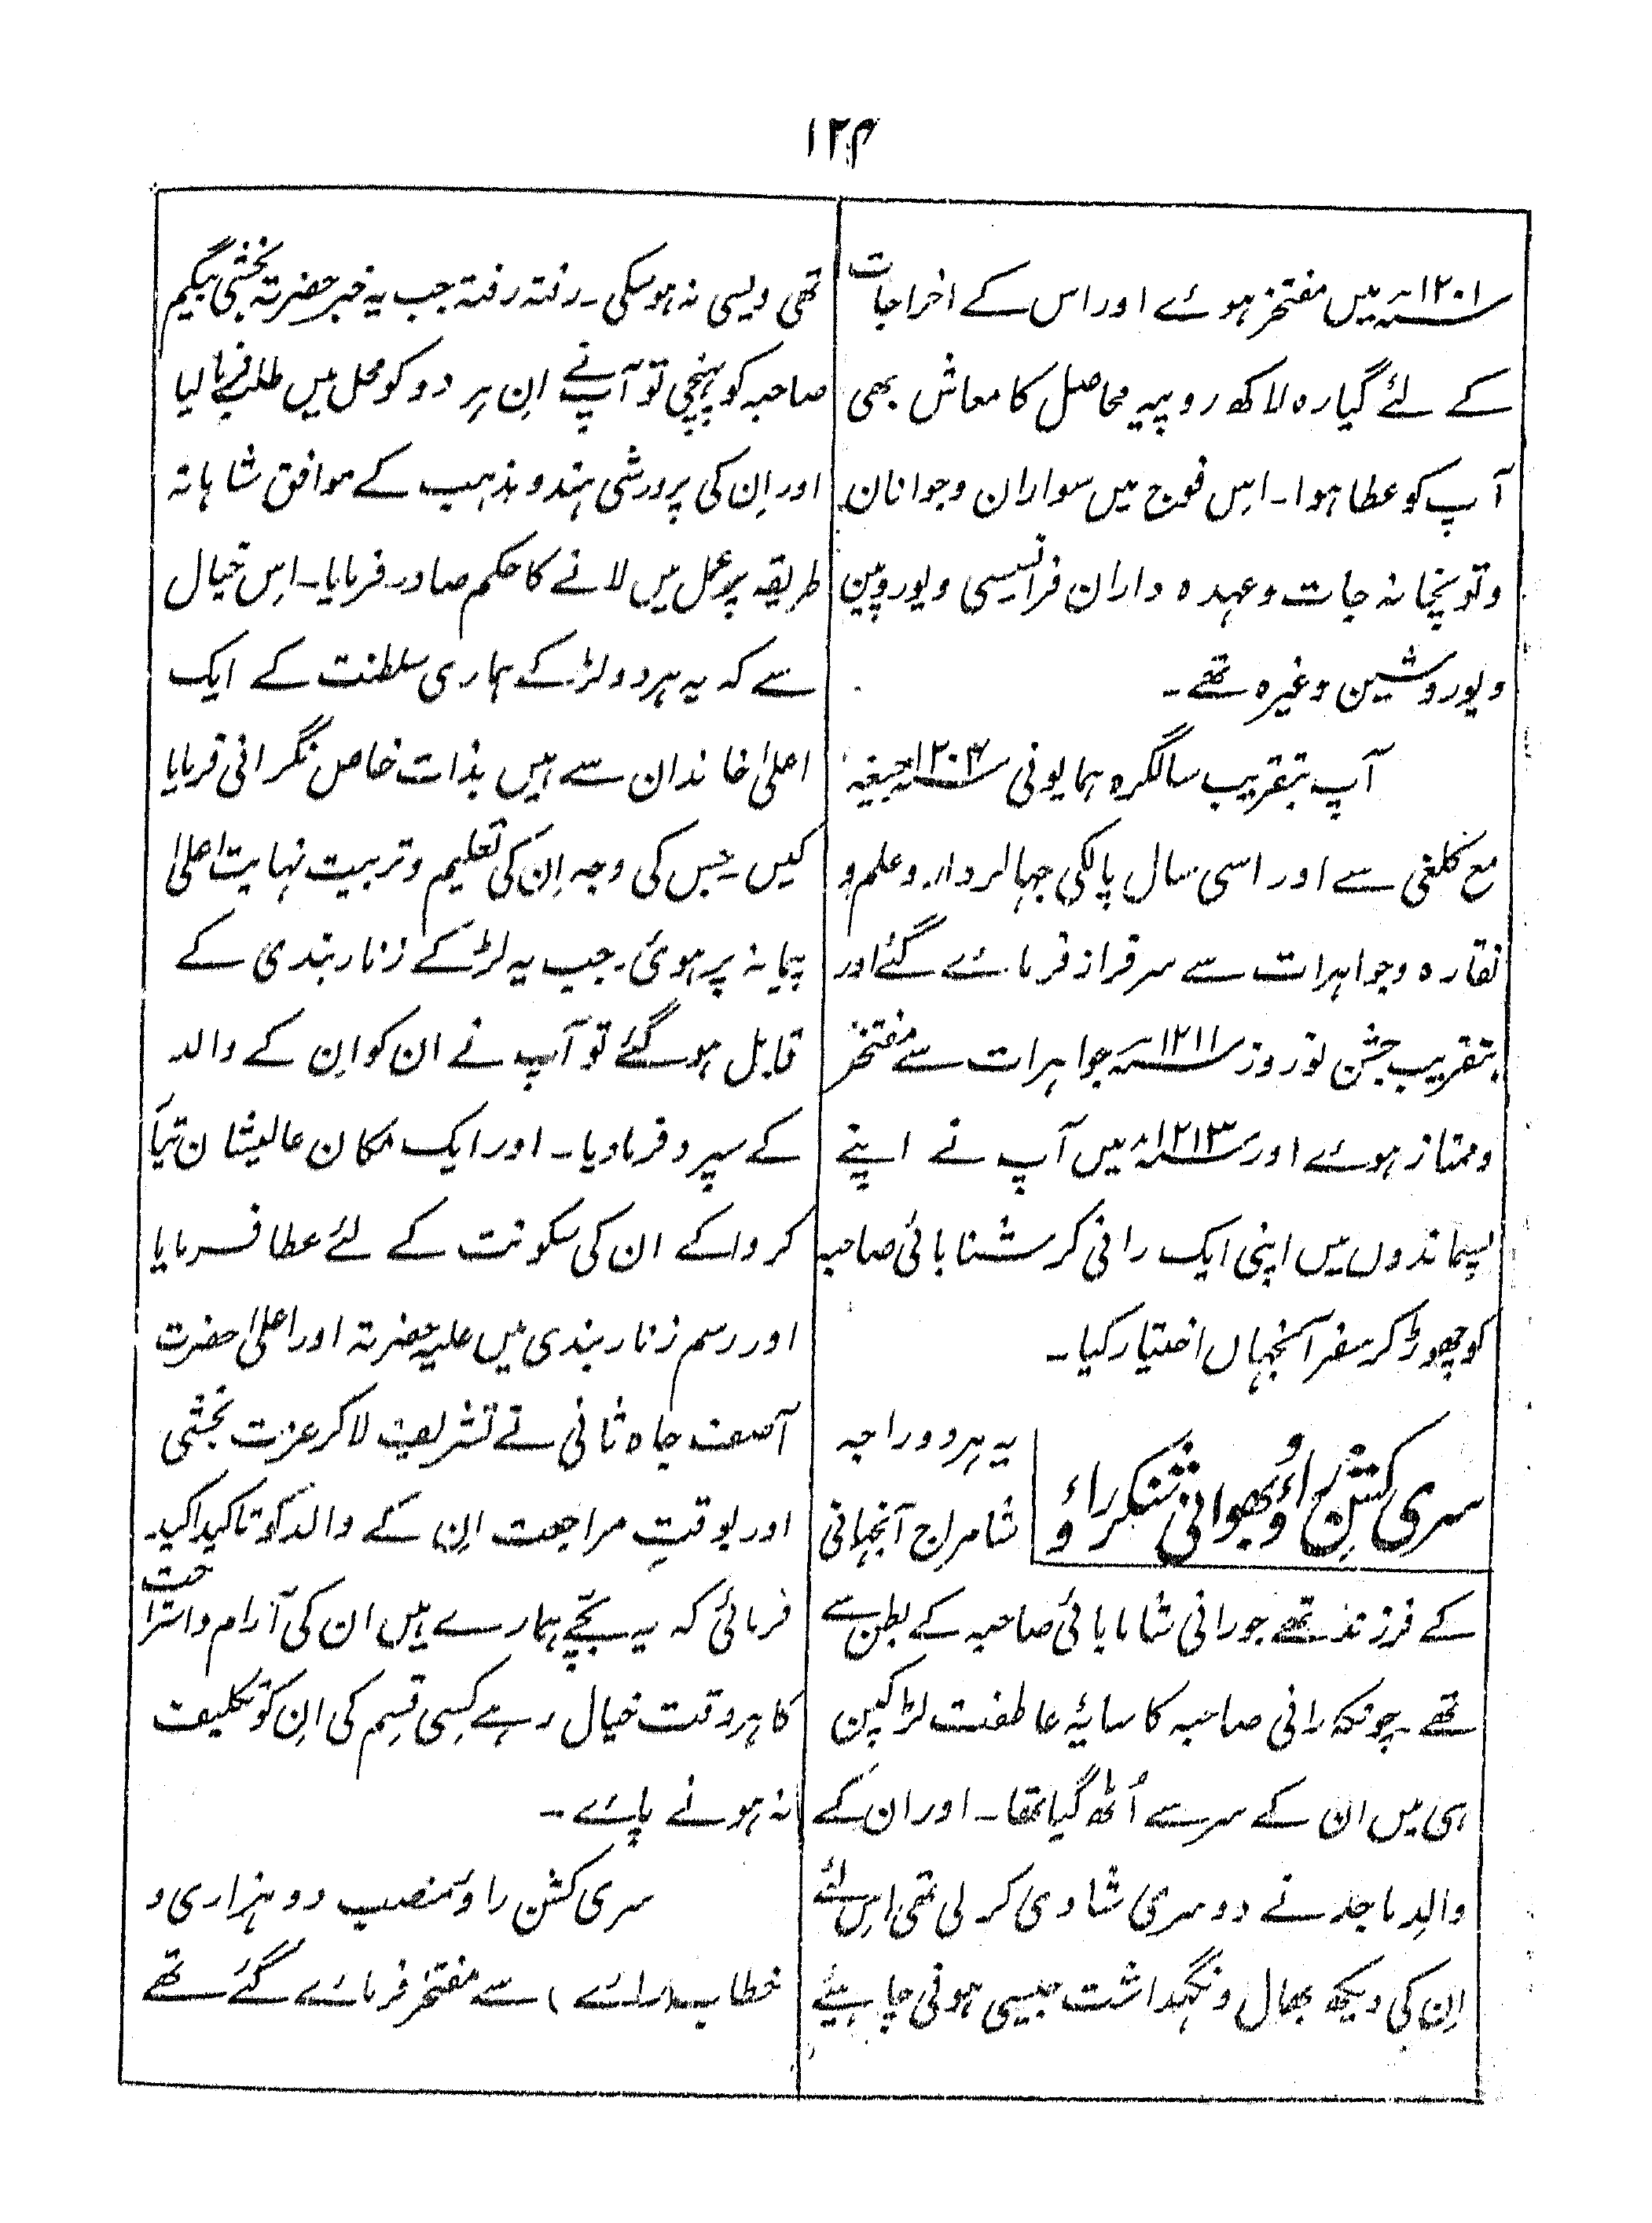 ۱۲۴
۱۲۰۱؁ میں مفتخر ہوئے اور اس کے اخراجات
کے لئے گیارہ لاکھ روپیہ محاصل کا معاش بھی
آپ کو عطا ہوا۔ اِس فوج میں سواران و جوانان
و توپخانہ جات و عہدہ داران فرانسیسی و یوروپین
و یوروشین وغیرہ تھے۔
آپ بتقریب سالگرہ ہمایونی ۱۲۰۳؁ جیغہ
مع کلغی سے اور اسی سال پالکی جہالردار و علم و
نقارہ و جواہرات سے سرفراز فرمائے گئے اور
بتقریب جشن نوروز ۱۲۱۱؁ جواہرات سے مفتخر
و ممتاز ہوئے اور ۱۲۱۳؁ میں آپ نے اپنے
پسماندوں میں اپنی ایک رانی کرشنا بائی صاحبہ
کو چھوڑ کر سفر آنجہاں اختیار کیا۔
سری کشن راؤ و بھوانی شنکر راؤ
یہ ہر دو راجہ
شامراج آنجہانی
کے فرزند تھے جو رانی شاما بائی صاحبہ کے بطن سے
تھے۔ چونکہ رانی صاحبہ کا سایۂ عاطفت لڑکپن
ہی میں ان کے سر سے اُٹھ گیا تھا۔ اور ان کے
والدِ ماجد نے دوسری شادی کر لی تھی اِس لئے
اِن کی دیکھ بھال و نگہداشت جیسی ہونی چاہیئے
تھی ویسی نہ ہو سکی۔ رفتہ رفتہ جب یہ خبر حضرتہ بخشی بیگم
صاحبہ کو پہنچی تو آپ نے اِن ہر دو کو محل میں طلب فرما لیا
اور اِن کی پرورشی ہندو مذہب کے موافق شاہانہ
طریقہ پر عمل میں لانے کا حکم صادر فرمایا۔ اِس خیال
سے کہ یہ ہر دو لڑکے ہماری سلطنت کے ایک
اعلیٰ خاندان سے ہیں بذات خاص نگرانی فرمایا
کیں۔ جس کی وجہ اِن کی تعلیم و تربیت نہایت اعلیٰ
پیمانہ پر ہوئی۔ جب یہ لڑکے زنار بندی کے
قابل ہو گئے تو آپ نے ان کو اِن کے والد
کے سپرد فرما دیا۔ اور ایک مکان عالیشان تیار
کروا کے ان کی سکونت کے لئے عطا فرمایا
اور رسم زنار بندی میں علیہ حضرتہ اور اعلیٰ حضرت
آصف جاہ ثانی نے تشریف لا کر عزت بخشی
اور بوقتِ مراجعت اِن کے والد کو تاکید اکید
فرمائی کہ یہ بچّے ہمارے ہیں ان کی آرام و استراحت
کا ہر وقت خیال رہے کِسی قِسم کی اِن کو تکلیف
نہ ہونے پائے۔
سری کشن راؤ منصب دو ہزاری و
خطاب (رائے) سے مفتخر فرمائے گئے تھے